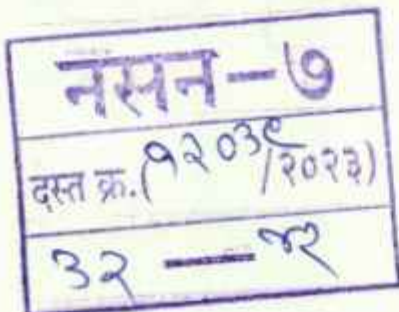 नसन-७
दस्त क्र.(१२०३९/२०२३)
३२ — ४२